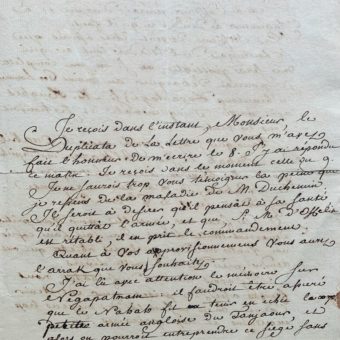 Je reçois dans l'instant, Monsieur, le
Duplicata de La Lettre que vous m'aves
fait l'honneur de m'ecrire le 8. J'y ai repondu
ce matin. Je reçois dans le moment celle du 9.
Je ne saurois trop vous temoigner la peine que
je ressens de la maladie de M. Duchemin
Il seroit à desirer qu'il pensât à sa santé
qu'il quittât l'armée, et que, si M. d'Offelis
est retabli, il en prit le commandement.
Quant à Vos approvisionnemens Vous aures
l'arrak que Vous souhaites
J'ai lû avec attention le memoire sur
Negapatnam. il faudroit être assuré
que le Nabab fit tenir en echec la
petite armée angloise du Tanjaour, et
alors on pourroit entreprendre ce siége sans